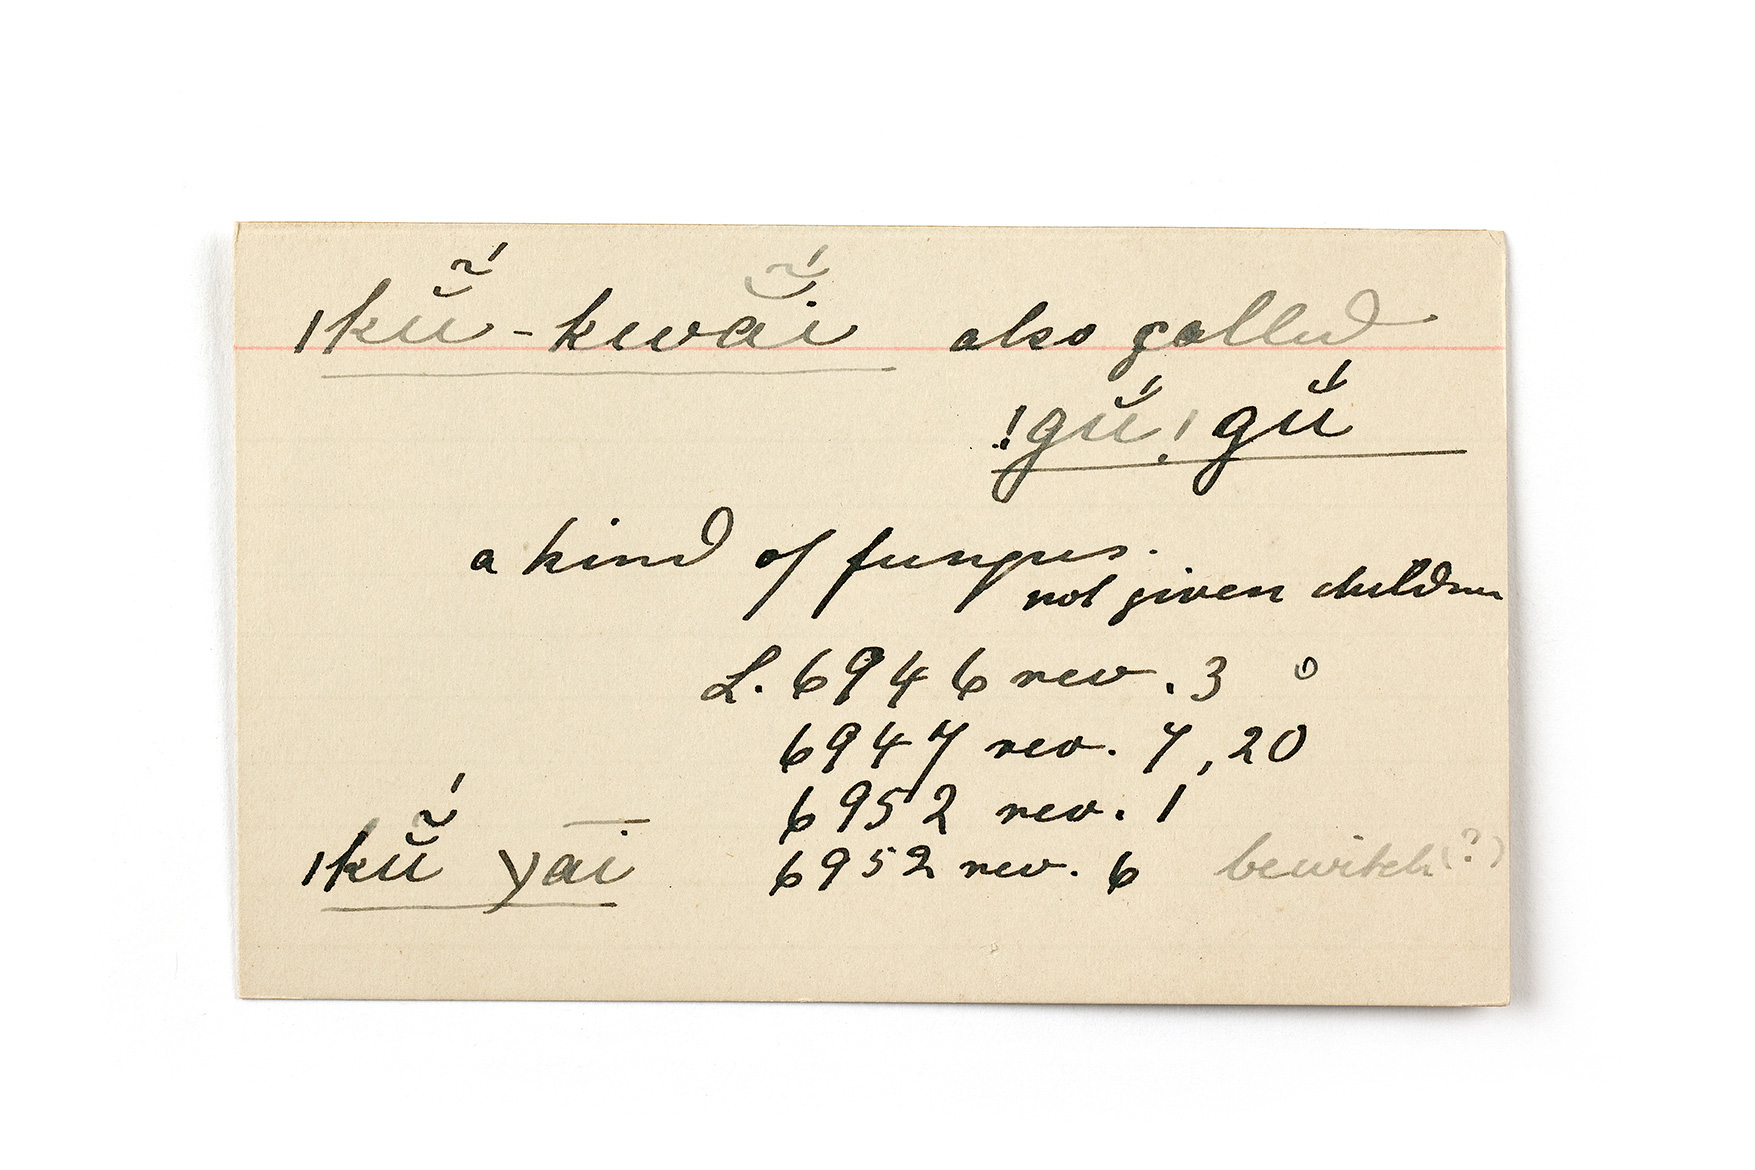 ǀkŭ̃́-kwăĩ́ also called
!gŭ́!gŭ́
a kind of fungus.
not given children
L. 6946 rev. 3
6947 rev. 7, 20
6952 rev. 1
ǀkŭ̃́ yai 6952 rev. 6 bewitch (?)